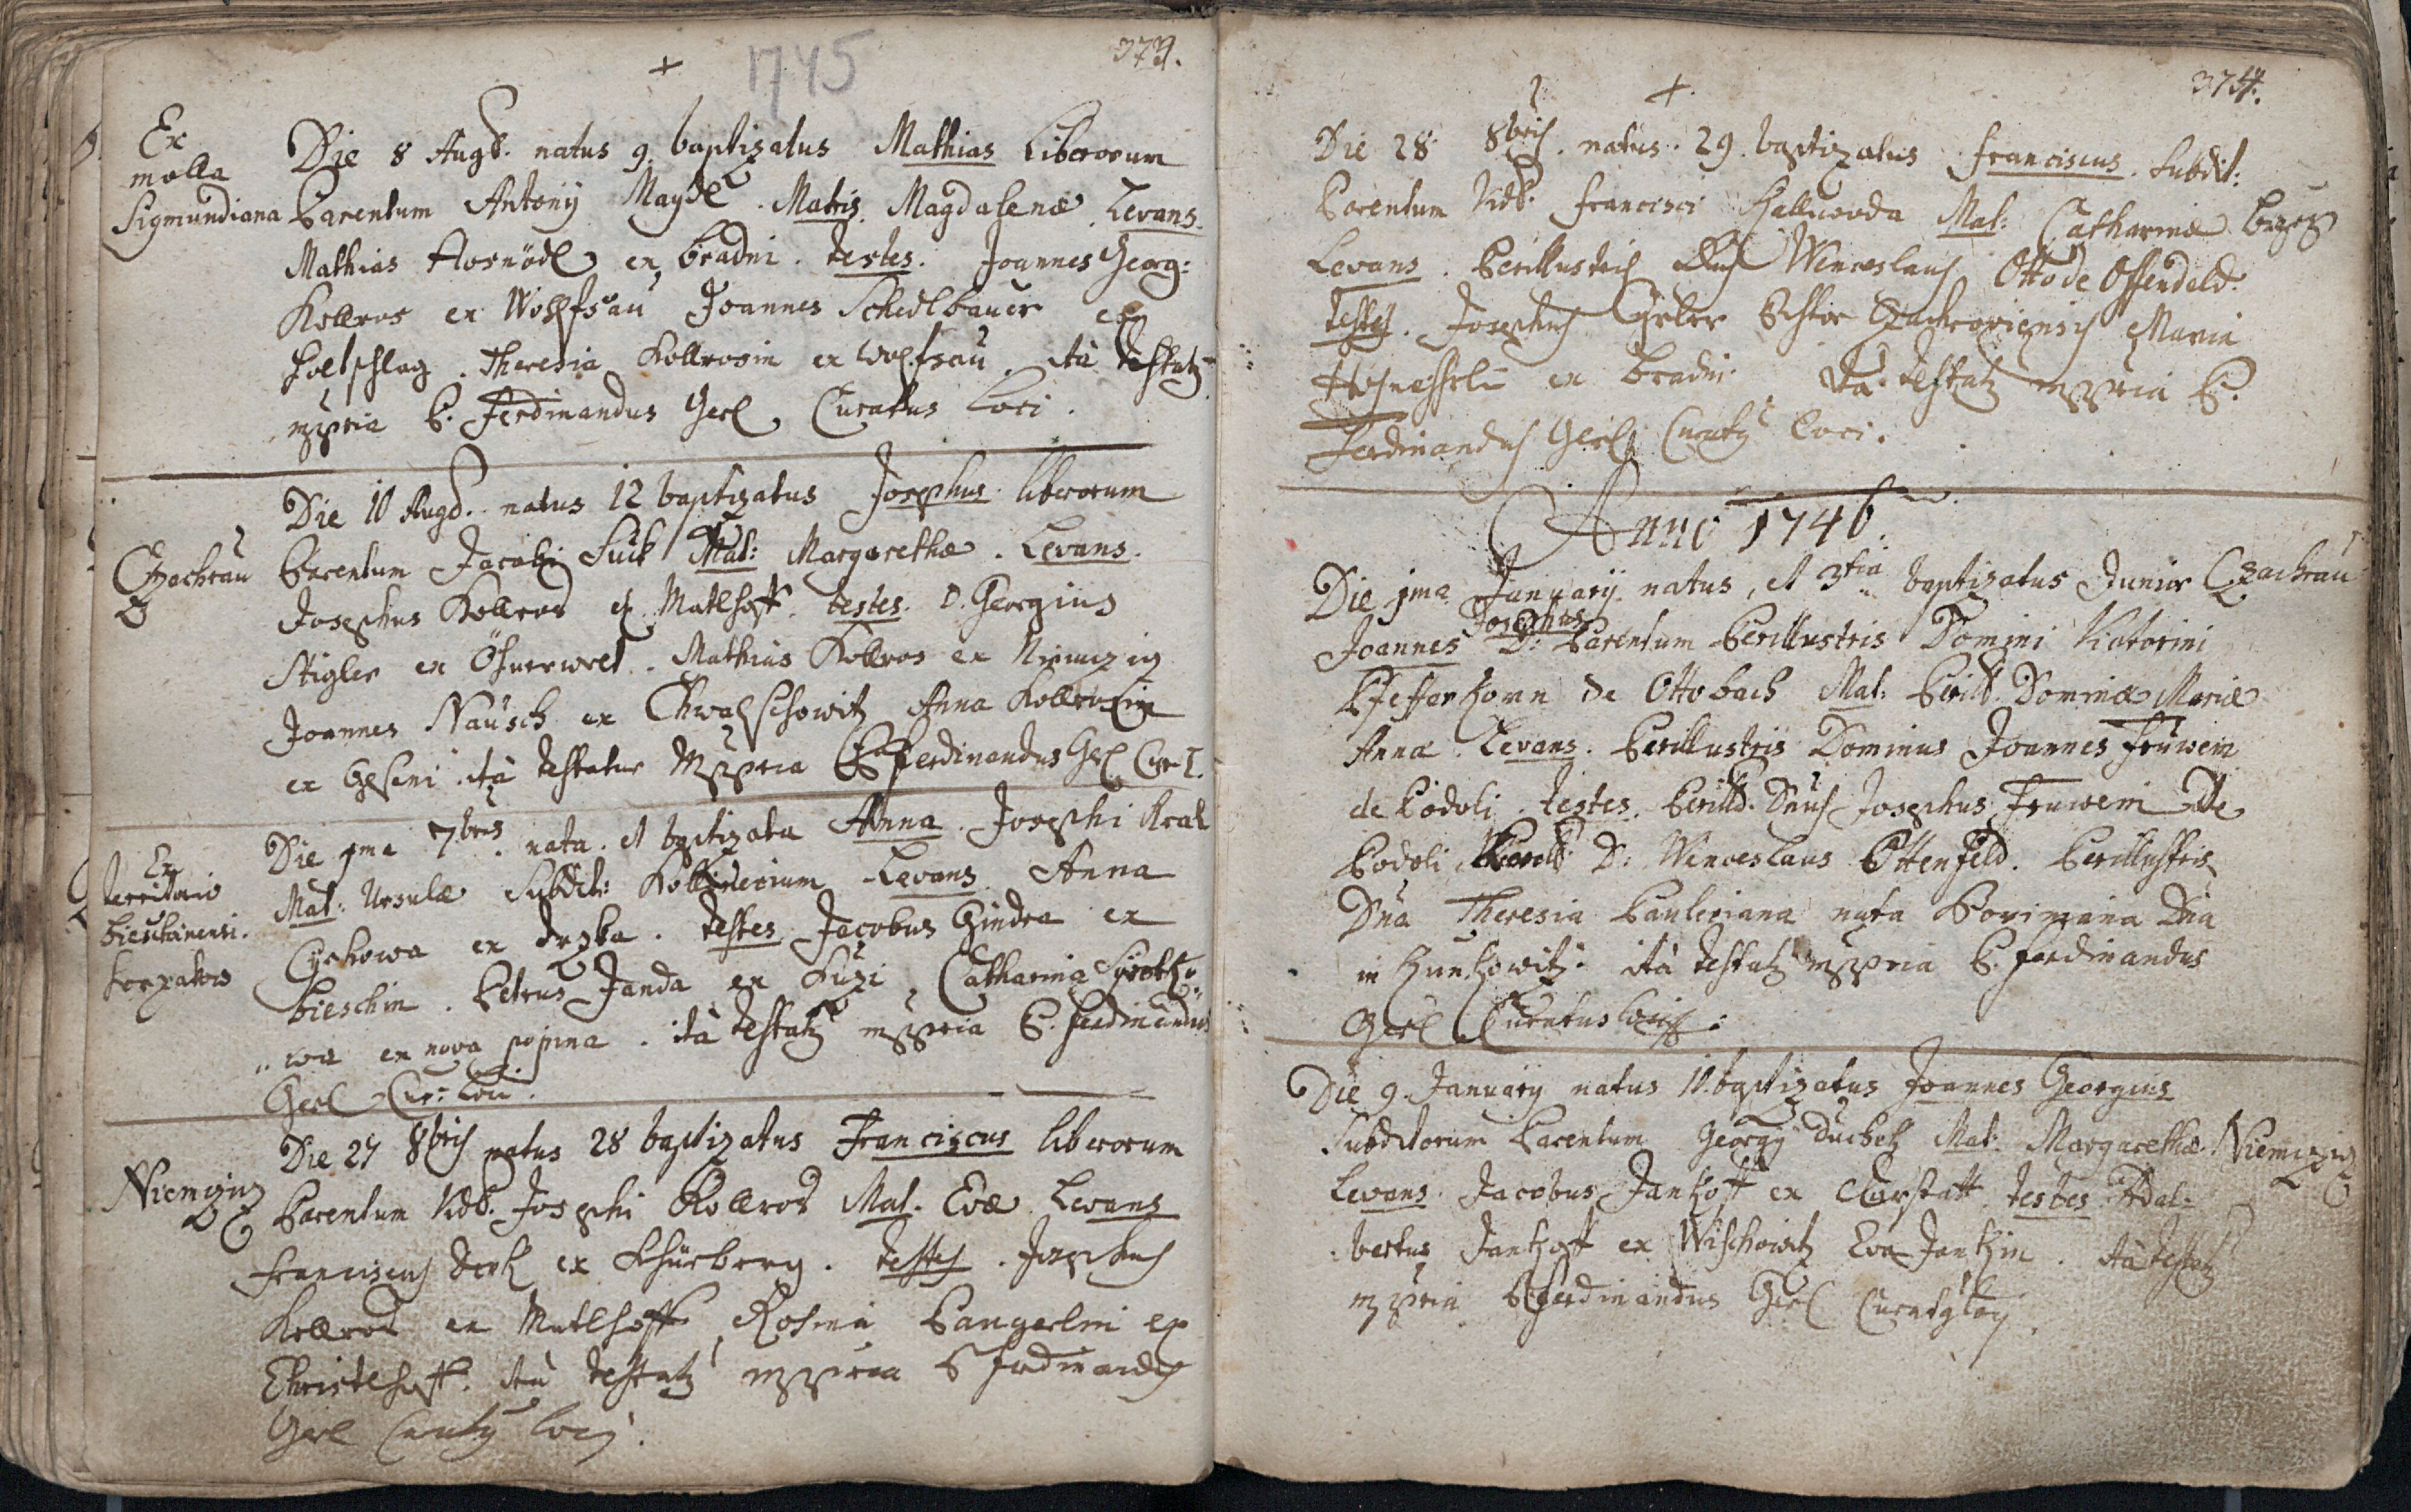 1745
373.
Ex
molla
Sigmundiana
Die 8 Augst. natus 9. baptizatus Mathias Liberorum
Parentum Antonÿ Maydl. Matris Magdalenæ. Levans.
Mathias ex Bradni. testes. Joannes Georg:
Kollros ex Wolfsau Joannes Schedlbauer ex
Holtschlag. Theresia Kollrosin ex Wolfsau. ità testatz
mppria P. Ferdinandus Gerl, Curatus Loci.
Czachrau
Die 10 Augst. natus 12 baptizatus Josephus liberorum
Parentum Jacobi Suck Mat: Margarethæ. Levans.
Josephus Kollros ex Matlhoff. testes. D. Georgius
Stigler ex. Mathius Kollros ex Niemczig
Joannes Nausch ex Chwalschowitz Anna Kollrosin
ex Geseni. ità testatur Mppria P. Ferdinandus Gerl Cur L.
Ex
territorio
bieschinensi.
Die 1ma 7bris. nata. et baptizata Anna. Josephi Kral
Mat: Ursulæ Subdit: Levans Anna
ex. testes Jacobus Gindra ex
bieschin. Petrus Janda ex, Catharina
"wa ex nova popina. ità testatz mppria P. Ferdinandus
Gerl Cur: Loci.
Niemczig
Die 27 8bris natus 28 baptizatus Franciscus liberorum
Parentum Vidt. Josephi Kollros Mat. Evæ Levans
Franciscus ex. testes. Josephus
Kollros ex Matlhoff, Rosina Pangerlin ex
Christlhoff. ità testatz mppria P Ferdinandus
Gerl Curatus Loci.
374.
Die 28 8bris. natus. 29. baptizatus Franciscus. Subdit:
Parentum Vidt. Francisci Mat: Catharinæ
Levans. Perillustris Dnus Wenceslaus Otto de Ottenfeld.
testes. Josephus Czachroviensis Maria
ex Bradni. ità testatz mppria P.
Ferdinandus Gerl Curatus Loci.
Anno 1746.
Die 1ma Januarÿ natus, et 3tia baptizatus Junior Czachrau
Josephus
Joannes D: Parentum Perillustris Domini Victorini
Pfefferkorn de Ottobach Mat: Perill. Dominæ Mariæ
Annæ Levans. Perillustris Dominus Joannes Fruwein
de Podoli. testes. Perill. Dnus Josephus Fruwein de
Podoli, D: Wenceslaus Ottenfeld. Perillustris
Dna Theresia nata Dna
in. ità testatz mppria P. Ferdinandus
Gerl Curatus Loci:
Die 9. Januarÿ natus 10. baptizatus Joannes Georgius
Subditorum Parentum Georgÿ Mat: Margarethæ. Niemczig
Levans. Jacobus Jankoff ex testes Adal-
bertus Jankoff ex Wischowitz Eva Jankin. ità testatz
mppria P Ferdinandus Gerl Curatus Loci.